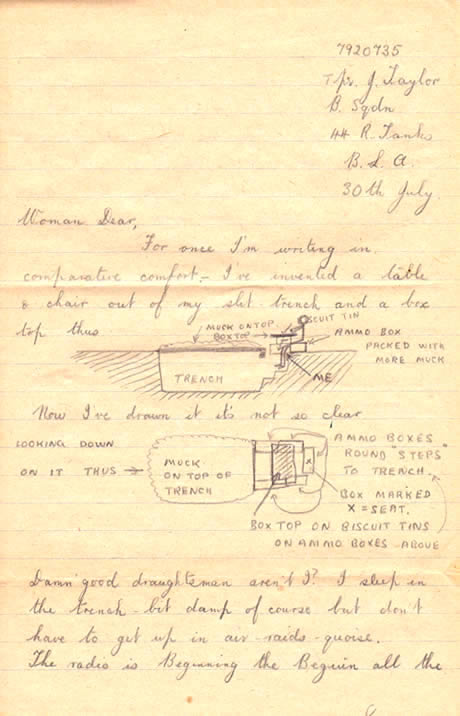 7920735
Tpr. J. Taylor
B. Sqdn
44 R. Tanks
B. L. A.
30th July.
Woman Dear,
For once I'm writing in
comparative comfort - I've invented a table
& chair out of my slit-trench and a box
top thus
MUCK ON TOP.
BOX TOP
BISCUIT TIN
AMMO BOX
PACKED WITH
MORE MUCK
TRENCH
ME
Now I've drawn it it's not so clear
LOOKING DOWN
ON IT THUS
MUCK
ON TOP OF
TRENCH
AMMO BOXES
ROUND "STEPS"
TO TRENCH.
X
BOX MARKED
X = SEAT.
BOX TOP ON BISCUIT TINS
ON AMMO BOXES ABOVE
Damn' good draughtsman aren't I? I sleep in
the trench - bit damp of course but don't
have to get up in air-raids -
The radio is Beginning the Beguin all the